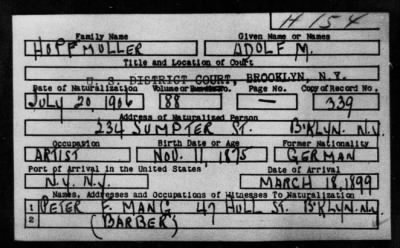 H 154
Family Name Given Name or Names
HOFFMULLER ADOLF M.
Title and Location of Court
U. S. DISTRICT COURT, BROOKLYN, N.Y.
Date of Naturalization Volume or Page No. Copy of Record No.
JULY 20, 1906 88 — 339
Address of Naturalized Person
234 SUMPTER ST. B'KLYN. N.Y.
Occupation Birth Date or Age Former Nationality
ARTIST NOV. 11, 1875 GERMAN
Port of Arrival in the United States Date of Arrival
N.Y. N.Y. MARCH 18, 1899
Names, Addresses and Occupations of Witnesses To Naturalization
1 PETER F. MANG 47 HULL ST. B'KLYN. N.Y.
2 (BARBER)